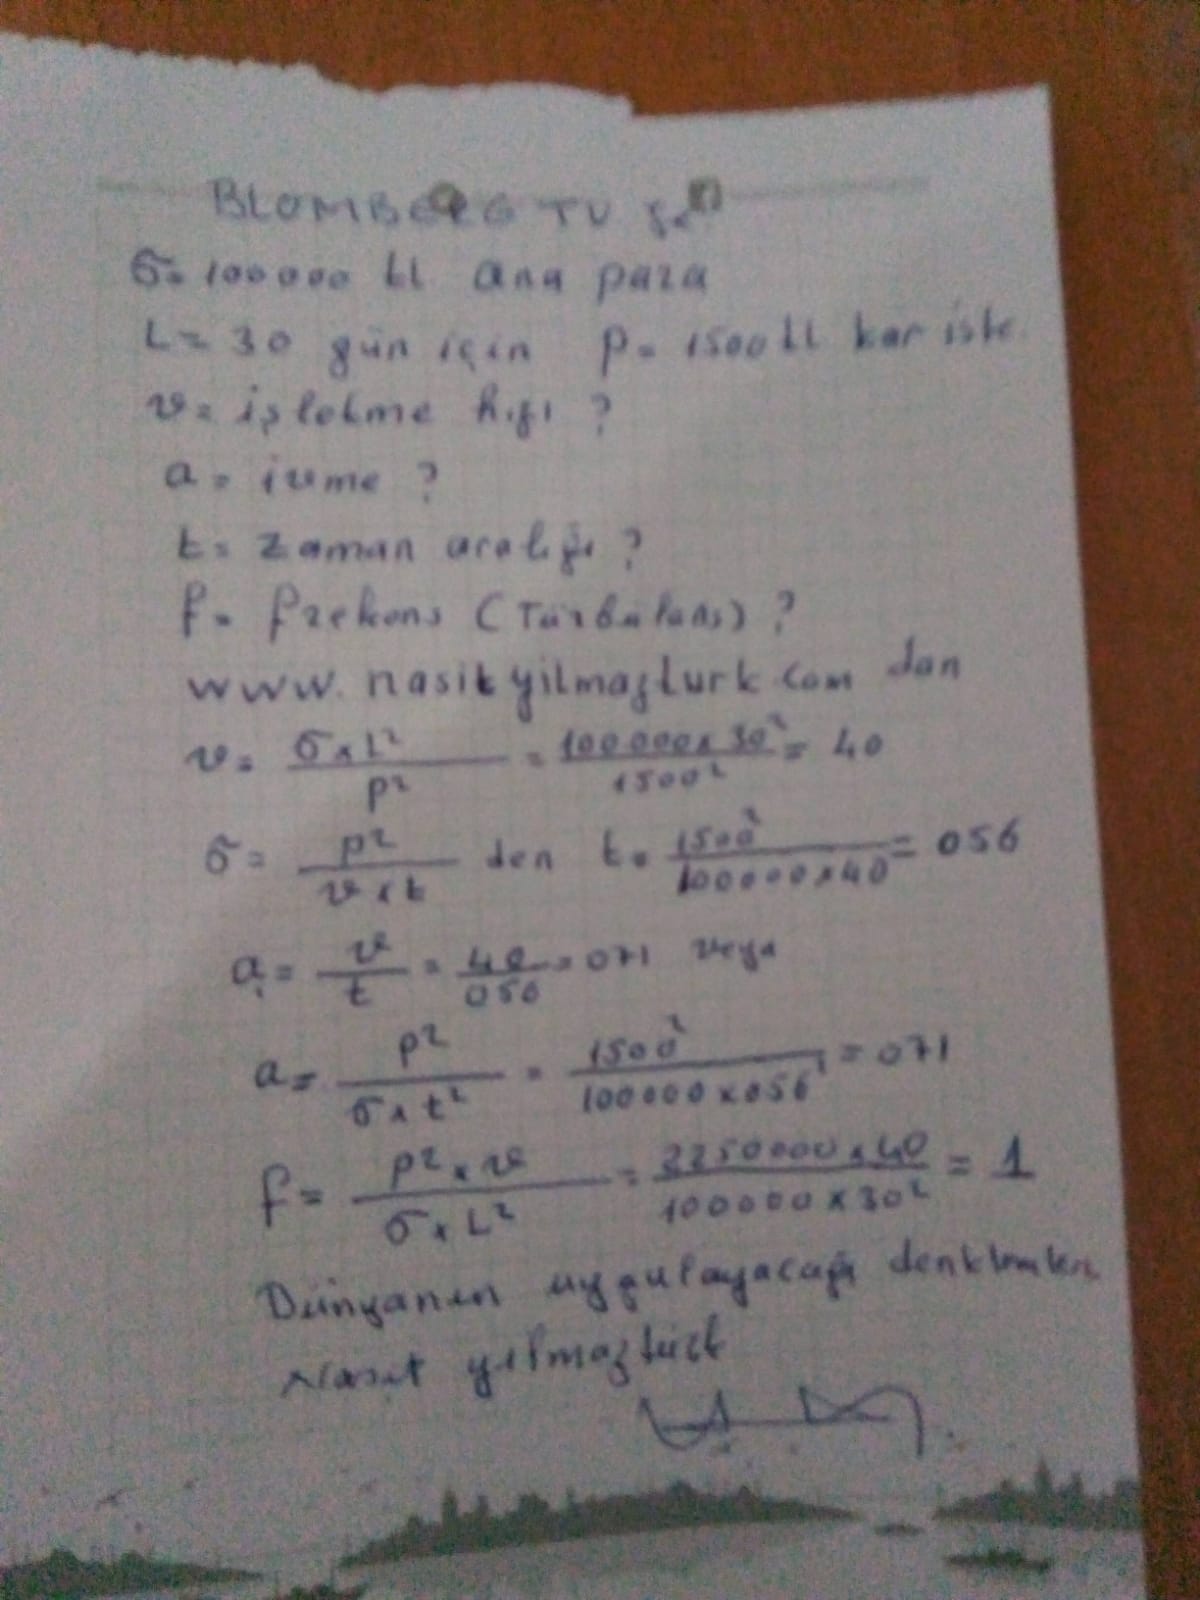 BLOMBERG TV ye
σ= 100000 tl ana para
L= 30 gün için P= 1500 tl kar iste
v= işletme hızı ?
a= ivme ?
t= zaman aralığı ?
f= frekans (Türbülans) ?
www.nasityilmazturk.com dan
v= σxL² / P² = 100000x30² / 1500² = 40
σ= P² / vxt den t= 1500² / 100000x40 = 056
a= v / t = 40 / 056 = 071 veya
a= P² / σxt² = 1500² / 100000x056² = 071
f= P²xv / σxL² = 2250000x40 / 100000x30² = 1
Dünyanın uygulayacağı denklemler
Nasit yılmaztürk